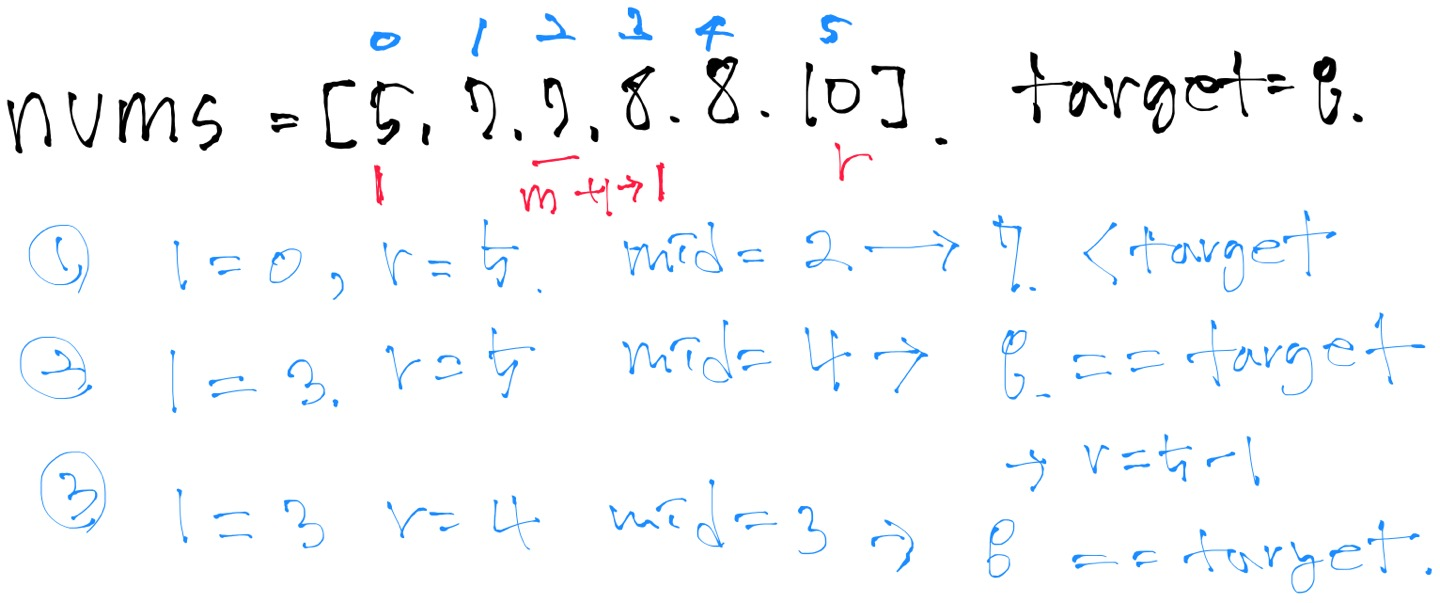 0 1 2 3 4 5
nums = [5, 7, 7, 8, 8, 10]. target = 8.
l m +1→l r
① l=0, r=5. mid=2 → 7. < target
② l=3. r=5 mid=4 → 8. == target
→ r=5-1
③ l=3 r=4 mid=3 → 8 == target.